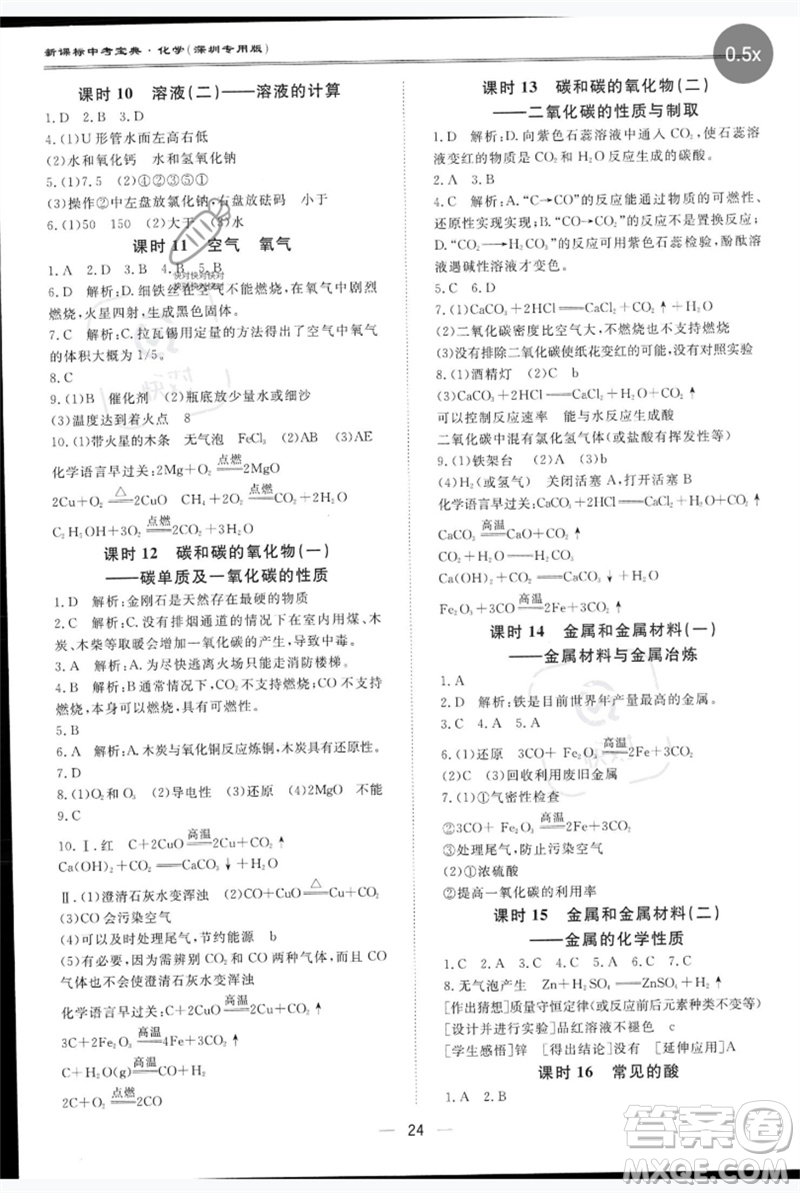 新课标中考宝典·化学(深圳专用版)
0.5x
课时 10 溶液(二)——溶液的计算
1. D 2. B 3. D
4. (1)U 形管水面左高右低
(2)水和氧化钙 水和氢氧化钠
5. (1)7.5 (2)④①③②⑤
(3)操作②中左盘放氯化钠,右盘放砝码 小于
6. (1)50 150 (2)大于 (3)水
课时 11 空气 氧气
1. A 2. D 3. B 4. B 5. B
6. D 解析:D. 细铁丝在空气不能燃烧,在氧气中剧烈
燃烧,火星四射,生成黑色固体。
7. C 解析:C. 拉瓦锡用定量的方法得出了空气中氧气
的体积大概为 1/5。
8. C
9. (1)B 催化剂 (2)瓶底放少量水或细沙
(3)温度达到着火点 8
10. (1)带火星的木条 无气泡 FeCl₃ (2)B (3)AE
化学语言早过关:2Mg+O₂ 点燃 ═ 2MgO
2Cu+O₂ △ ═ 2CuO CH₄+2O₂ 点燃 ═ CO₂+2H₂O
C₂H₅OH+3O₂ 点燃 ═ 2CO₂+3H₂O
课时 12 碳和碳的氧化物(一)
——碳单质及一氧化碳的性质
1. D 解析:金刚石是天然存在最硬的物质
2. B 解析:B. 没有排烟通道的情况下在室内用煤、木
炭、木柴等取暖会有一氧化碳的产生,导致中毒。
3. A 解析:A. 为尽快逃离应该走消防楼梯。
4. B 解析:CO 能燃烧,不支持燃烧,CO₂ 不支持
燃烧,不能燃烧。
5. B
6. A 解析:A. 木炭与氧化铜反应炼铜,木炭表现还原性。
7. D
8. (1)O₂ (2)导电性 (3)还原 (4)2MgO
9. C
10. Ⅰ. 红 C+2CuO 高温 ═ 2Cu+CO₂↑
Ca(OH)₂+CO₂═CaCO₃↓+H₂O
Ⅱ. (1)澄清石灰水变浑浊 (2)CO+CuO △ ═ Cu+CO₂
(3)CO 会污染空气
(4)可以及时处理尾气,节约能源 c
(5)有影响,因为 CO 和 CO₂ 两种气体都不能
使澄清石灰水变浑浊
化学语言早过关:C+2CuO 高温 ═ 2Cu+CO₂↑
3C+2Fe₂O₃ 高温 ═ 4Fe+3CO₂↑
C+H₂O(g) 高温 ═ CO+H₂
2C+O₂ 点燃 ═ 2CO
课时 13 碳和碳的氧化物(二)
——二氧化碳的性质与制取
1. D 解析:D. 向紫色石蕊溶液中通入 CO₂,使石蕊溶
液变红的物质是 CO₂ 和 H₂O 反应生成的碳酸。
2. A 3. B
4. C 解析:A. “C→CO”的反应能通过物质的可燃性、
还原性实现实现;B. “CO→CO₂”的反应都是化合反
应;C. CO₂+H₂O 可以用紫色石蕊检验,酚酞溶
液遇碱性溶液才变色。
5. A 6. C
7. (1)CaCO₃+2HCl═CaCl₂+H₂O+CO₂↑
(2)二氧化碳密度比空气大,不燃烧也不支持燃烧
(3)没有排除二氧化碳使纸花变红的可能,做对照实验
8. (1)酒精灯 (2)C b
(3)CaCO₃+2HCl═CaCl₂+H₂O+CO₂↑
可以控制反应速率 能与水反应生成酸
二氧化碳中混有氯化氢气体(或盐酸具有挥发性)
9. (1)铁架台 (2)A (3)b
(4)H₂(或氢气) 关闭活塞 A,打开活塞 B
化学语言早过关:CaCO₃+2HCl═CaCl₂+H₂O+CO₂↑
CaCO₃ 高温 ═ CaO+CO₂↑
Ca(OH)₂+CO₂═CaCO₃↓+H₂O
Fe₂O₃+3CO 高温 ═ 2Fe+3CO₂
课时 14 金属和金属材料(一)
——金属材料与金属冶炼
1. A
2. D 解析:铁是目前世界年产量最高的金属。
3. C 4. A 5. A
6. (1)还原 3CO+Fe₂O₃ 高温 ═ 2Fe+3CO₂
(2)C (3)回收利用废旧金属
7. (1)①气密性检查
②3CO+Fe₂O₃ 高温 ═ 2Fe+3CO₂
③处理尾气,防止污染空气
(2)①浓硫酸
②提高一氧化碳的利用率
课时 15 金属和金属材料(二)
——金属的化学性质
1. C 2. A 3. C 4. D 5. C 6. D 7. C
8. 无气泡产生 Zn+H₂SO₄═ZnSO₄+H₂↑
[作出猜想]质量守恒定律(或反应前后元素种类不变等)
[设计并进行实验]品红溶液不褪色 c
[学生感悟]锌 [得出结论]没有 [延伸应用]A
课时 16 常见的酸
1. C 2. A 3. C
24
答案圈
MXQE.COM
快对